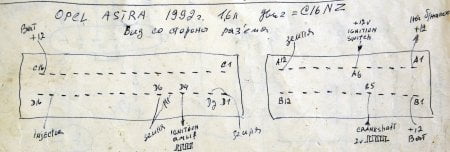 OPEL ASTRA 1992г. 1,6л двиг = C16NZ
Вид со стороны раз'ема
Batt
+12
C16
C1
D16
D6
D4
D2
D1
injector
земля
IGNITION
земля
земля
+12v
IGNITION
SWITCH
+12
A12
A6
A1
B12
B5
B1
CRANKSHAFT
2v
+12
Batt